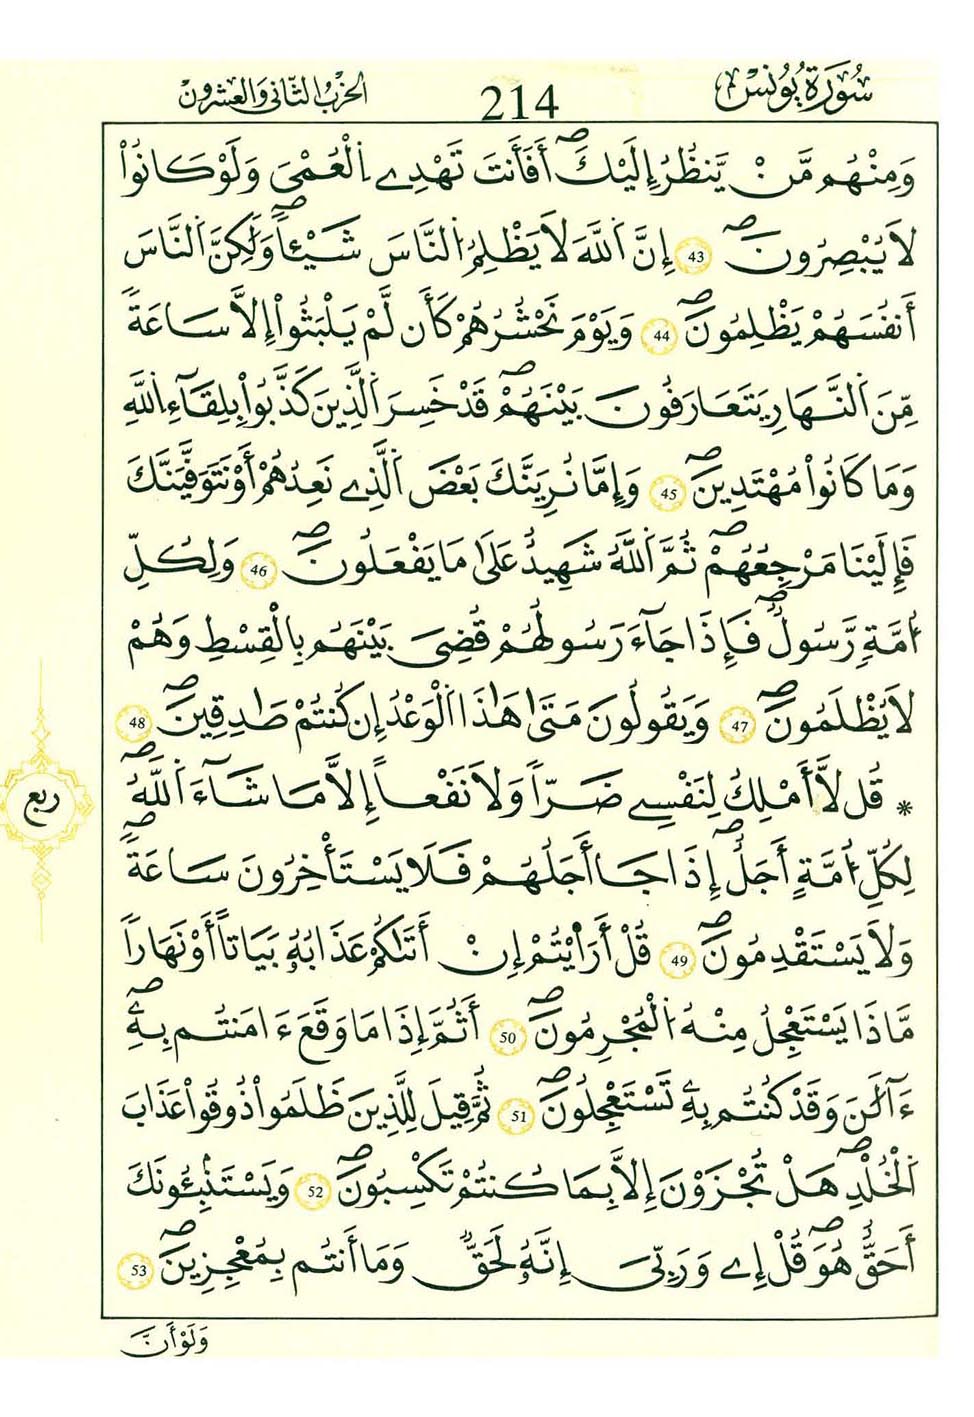 سُورَةُ يُونُس 214 الحزب الثاني والعشرون
وَمِنْهُم مَّنْ يَّنظُرُ إِلَيْكَۖ أَفَأَنتَ تَهْدِے اِ۬لْعُمْيَ وَلَوْ كَانُواْ
لَا يُبْصِرُونَۖ 43 إِنَّ اَ۬للَّهَ لَا يَظْلِمُ اُ۬لنَّاسَ شَيْـاٗۖ وَلَٰكِنَّ اَ۬لنَّاسَ
أَنفُسَهُمْ يَظْلِمُونَۖ 44 وَيَوْمَ نَحْشُرُهُمْ كَأَن لَّمْ يَلْبَثُواْ إِلَّا سَاعَةٗ
مِّنَ اَ۬لنَّهَارِ يَتَعَارَفُونَ بَيْنَهُمْۖ قَدْ خَسِرَ اَ۬لذِينَ كَذَّبُواْ بِلِقَآءِ اِ۬للَّهِ
وَمَا كَانُواْ مُهْتَدِينَۖ 45 وَإِمَّا نُرِيَنَّكَ بَعْضَ اَ۬لذِے نَعِدُهُمْ أَوْ نَتَوَفَّيَنَّكَ
فَإِلَيْنَا مَرْجِعُهُمْۖ ثُمَّ اَ۬للَّهُ شَهِيدٌ عَلَىٰ مَا يَفْعَلُونَۖ 46 وَلِكُلِّ
أُمَّةٖ رَّسُولٞۖ فَإِذَا جَآءَ رَسُولُهُمْ قُضِيَ بَيْنَهُم بِالْقِسْطِ وَهُمْ
لَا يُظْلَمُونَۖ 47 وَيَقُولُونَ مَتَىٰ هَٰذَا اَ۬لْوَعْدُ إِن كُنتُمْ صَٰدِقِينَۖ 48
* قُل لَّا أَمْلِكُ لِنَفْسِے ضَرّاٗ وَلَا نَفْعاً إِلَّا مَا شَآءَ اَ۬للَّهُۖ
لِكُلِّ أُمَّةٍ أَجَلٌۖ إِذَا جَا أَجَلُهُمْ فَلَا يَسْتَأْخِرُونَ سَاعَةٗۖ
وَلَا يَسْتَقْدِمُونَۖ 49 قُلْ أَرَٰيْتُمْ إِنْ أَتَىٰكُمْ عَذَابُهُۥ بَيَاتاً أَوْ نَهَاراٗ
مَّاذَا يَسْتَعْجِلُ مِنْهُ اُ۬لْمُجْرِمُونَۖ 50 أَثُمَّ إِذَا مَا وَقَعَ ءَامَنتُم بِهِۦۖ
ءَآلَٰنَ وَقَدْ كُنتُم بِهِۦ تَسْتَعْجِلُونَۖ 51 ثُمَّ قِيلَ لِلذِينَ ظَلَمُواْ ذُوقُواْ عَذَابَ
اَ۬لْخُلْدِۖ هَلْ تُجْزَوْنَ إِلَّا بِمَا كُنتُمْ تَكْسِبُونَۖ 52 وَيَسْتَنۢبِـُٔونَكَ
أَحَقٌّ هُوَۖ قُلْ إِے وَرَبِّيَ إِنَّهُۥ لَحَقّٞ وَمَا أَنتُم بِمُعْجِزِينَۖ 53
ربع
وَلَوْ أَنَّ